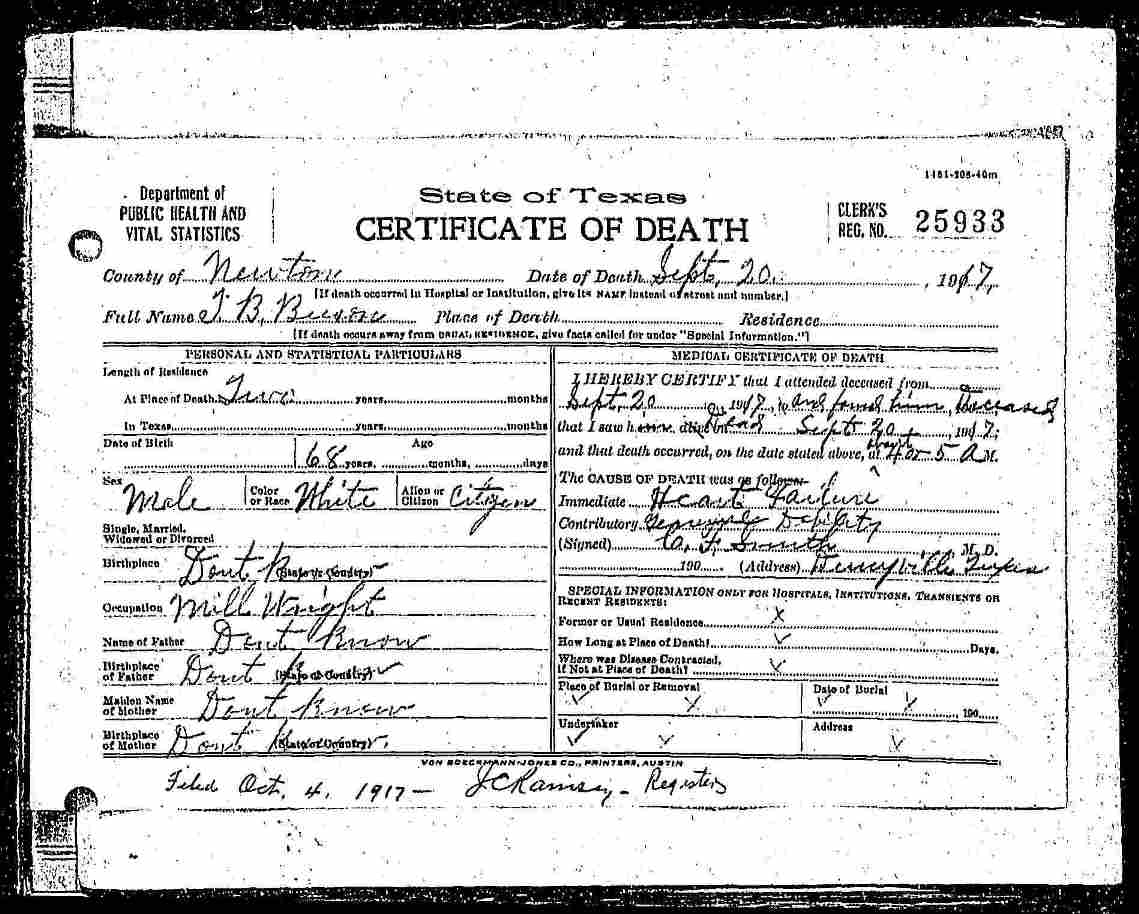 1181-808-40m
Department of
PUBLIC HEALTH AND
VITAL STATISTICS
State of Texas
CERTIFICATE OF DEATH
CLERK'S
REG. NO. 25933
County of Newton Date of Death Sept, 20. , 1917,
[If death occurred in Hospital or Institution, give its NAME instead of street and number.]
Full Name B. Place of Death Residence
[If death occurs away from USUAL RESIDENCE, give facts called for under "Special Information."]
PERSONAL AND STATISTICAL PARTICULARS
Length of Residence
At Place of Death, Two years, months
In Texas, years, months
Date of Birth Age
68 years, months, days
Sex Male Color or Race White Alien or Citizen Citizen
Single, Married,
Widowed or Divorced
Birthplace Dont Know (State or Country)
Occupation Mill Wright
Name of Father Dont Know
Birthplace of Father Dont Know (State or Country)
Maiden Name of Mother Dont Know
Birthplace of Mother Dont Know (State or Country)
MEDICAL CERTIFICATE OF DEATH
I HEREBY CERTIFY that I attended deceased from
Sept, 20 1917, to and found him, Deceased
that I saw him alive on Dead Sept 20, 1917;
and that death occurred, on the date stated above, at about 4 or 5 A M.
The CAUSE OF DEATH was as follows
Immediate Heart Failure
Contributory Debility
(Signed) C. F. Smith M. D.
190 (Address) Texas
SPECIAL INFORMATION ONLY FOR HOSPITALS, INSTITUTIONS, TRANSIENTS OR
RECENT RESIDENTS:
Former or Usual Residence X
How Long at Place of Death? Days.
Where was Disease Contracted,
if Not at Place of Death?
Place of Burial or Removal Date of Burial
190
Undertaker Address
VON BOECKMANN-JONES CO., PRINTERS, AUSTIN
Filed Oct. 4, 1917 — J C Ramsey — Register